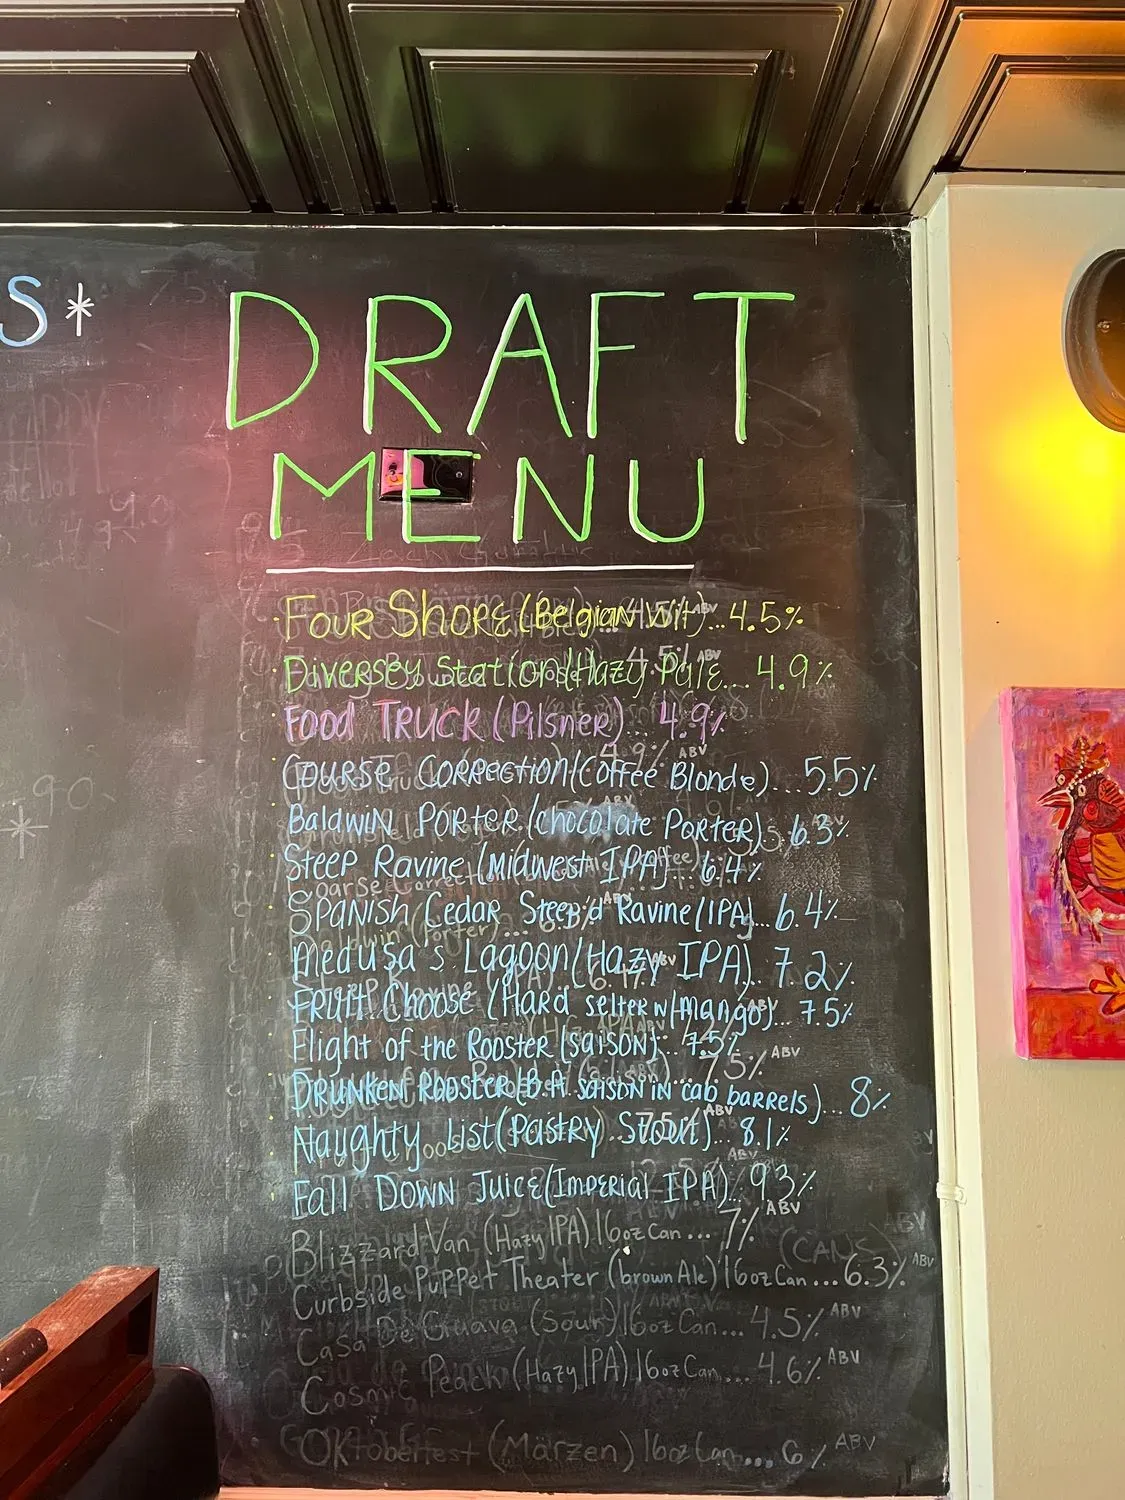 S*
DRAFT
MENU
Four Shore (Belgian Wit)...4.5%
Diversey Station (Hazy Pale... 4.9%
Food Truck (Pilsner). 4.9%
Course Correction (Coffee Blonde)...5.5%
Baldwin Porter (chocolate Porter). 6.3%
Steep Ravine (Midwest IPA) 6.4%
Spanish Cedar Steep'd Ravine (IPA)... 6.4%
Medusa's Lagoon (Hazy IPA). 7.2%
Fruit Choose (Hard selter w/mango)... 7.5%
Flight of the Rooster (saison). 7.5%
Drunken Rooster (B.A saison in cab barrels)... 8%
Naughty List (Pastry Stout). 8.1%
Fall Down Juice (Imperial IPA). 9.3%
Blizzard Van (Hazy IPA) 16oz Can... 7% ABV
Curbside Puppet Theater (brown Ale) 16oz Can...6.3% ABV
Casa De Guava (Sour) 16oz Can... 4.5% ABV
Cosmic Peach (Hazy IPA) 16oz Can... 4.6% ABV
Oktoberfest (Märzen) 16oz Can... 6% ABV